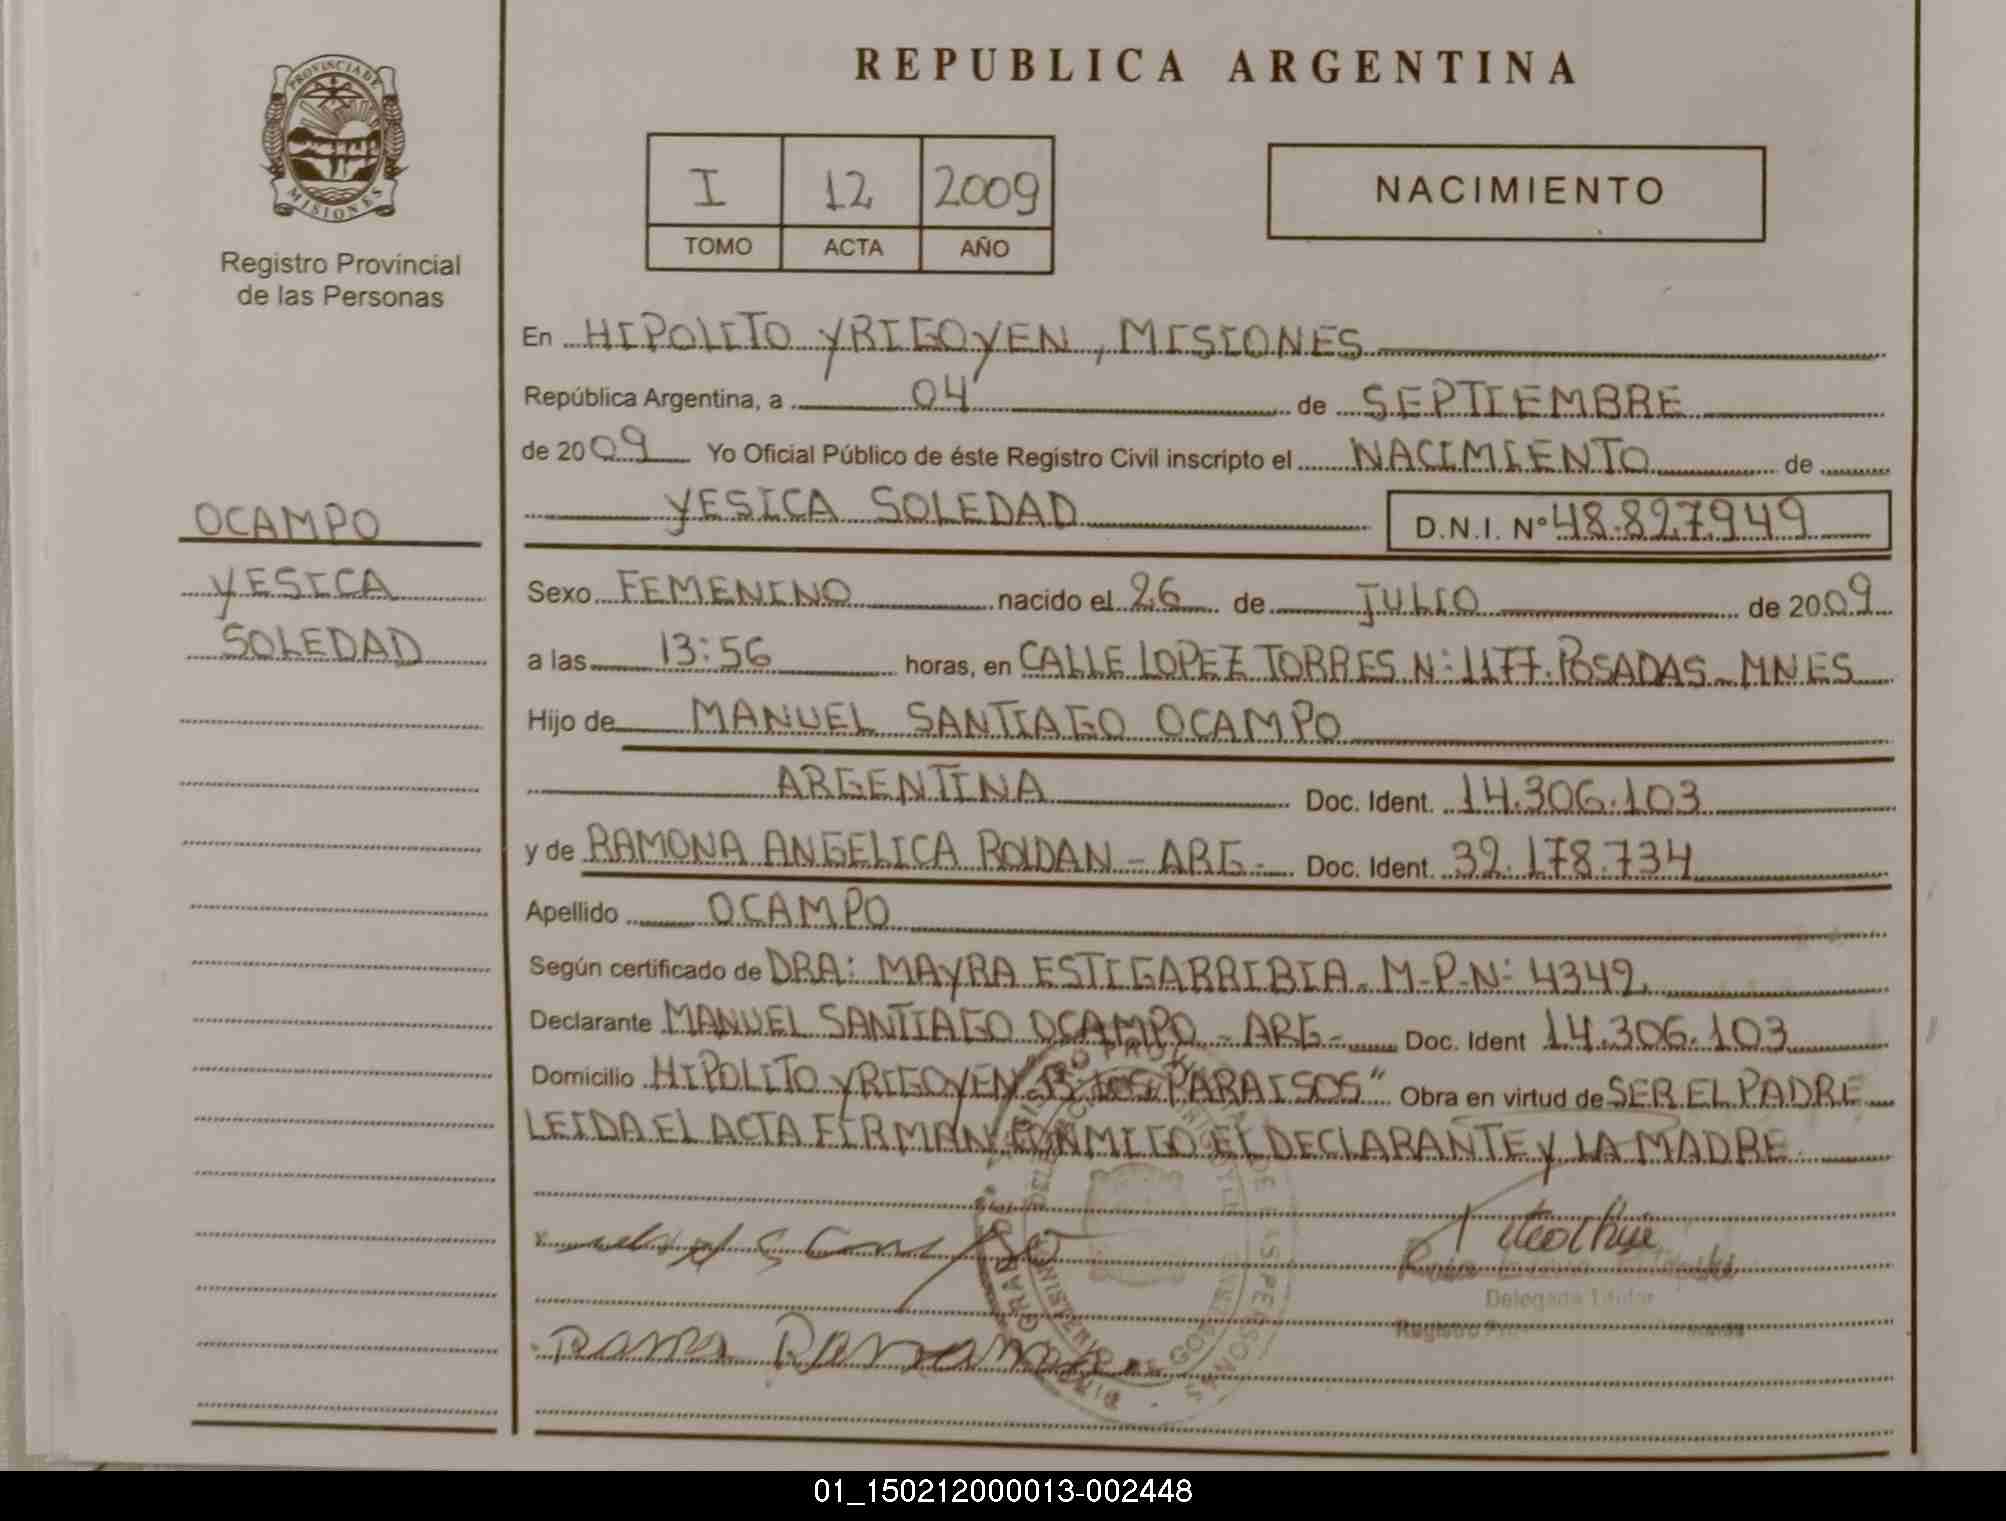 REPUBLICA ARGENTINA
PROVINCIA DE
MISIONES
Registro Provincial
de las Personas
I 12 2009
TOMO ACTA AÑO
NACIMIENTO
En HIPOLITO YRIGOYEN, MISIONES
República Argentina, a 04 de SEPTIEMBRE
de 2009 Yo Oficial Público de éste Registro Civil inscripto el NACIMIENTO de
YESICA SOLEDAD D.N.I. Nº 48.827.949
OCAMPO
YESICA
SOLEDAD
Sexo FEMENINO nacido el 26 de JULIO de 2009
a las 13:56 horas, en CALLE LOPEZ TORRES N: 1177. POSADAS - MNES
Hijo de MANUEL SANTIAGO OCAMPO
ARGENTINA Doc. Ident. 14.306.103
y de RAMONA ANGELICA ROLDAN - ARG - Doc. Ident. 32.178.734
Apellido OCAMPO
Según certificado de DRA: MAYRA ESTIGARRIBIA - M-P-N: 4342
Declarante MANUEL SANTIAGO OCAMPO - ARG - Doc. Ident 14.306.103
Domicilio HIPOLITO YRIGOYEN "B° LOS PARAISOS" Obra en virtud de SER EL PADRE
LEIDA EL ACTA FIRMAN CONMIGO EL DECLARANTE Y LA MADRE
Delegada Titular
Registro
01_150212000013-002448